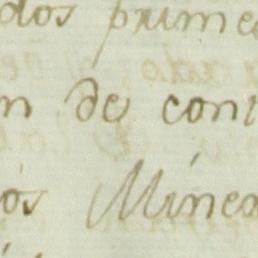 dos prime
n de cont
ós Miner